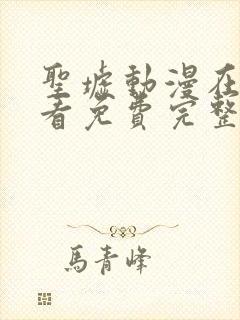 聖墟動漫在
看免費完整
馬青峰